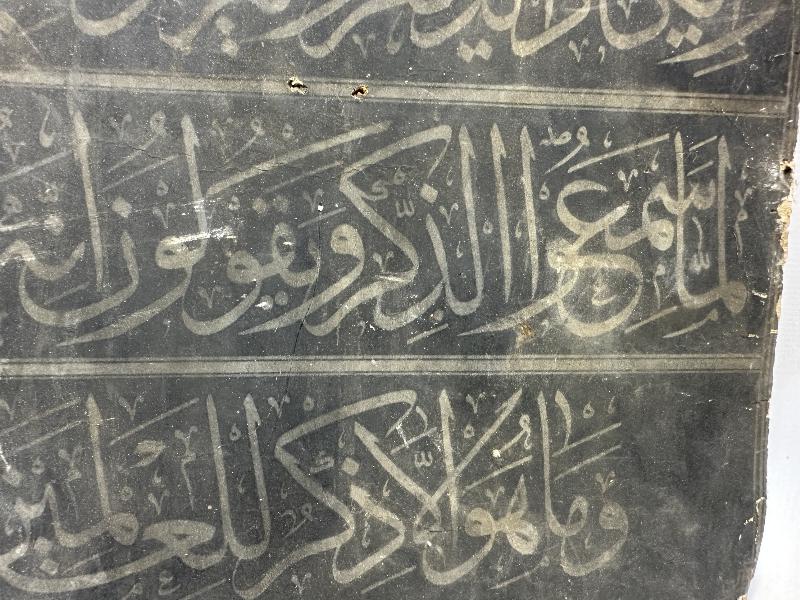 لَمَّا سَمِعُوا الذِّكْرَ وَيَقُولُونَ إِنَّهُ
وَمَا هُوَ إِلَّا ذِكْرٌ لِلْعَالَمِينَ